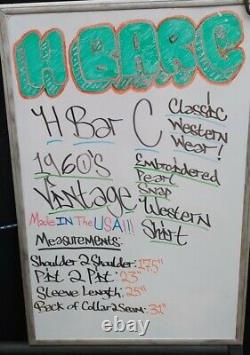 H BAR C
H Bar C
Classic
Western
Wear!
1960's
Vintage
Made IN The USA!!!
Embroidered
Pearl
Snap
Western
Shirt
Measurements:
Shoulder 2 Shoulder: 17.5"
Pit 2 Pit: 23"
Sleeve Length: 25"
Back of Collar 2 Seam: 31"